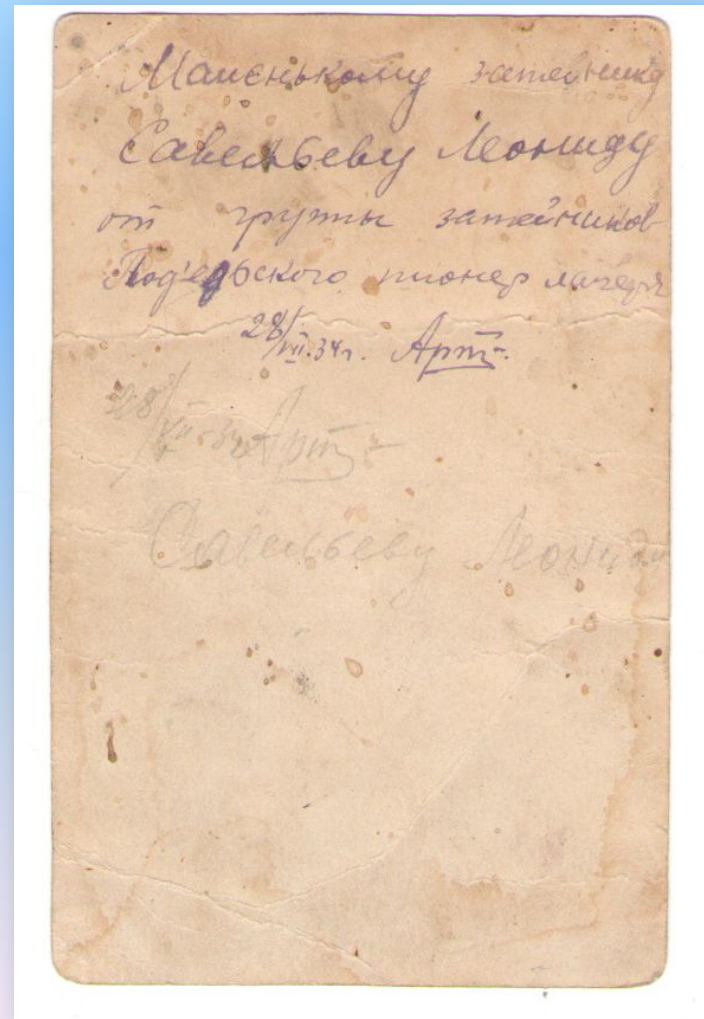 Маленькому затейнику
Савельеву Леониду
от группы затейников
Под'ельского пионер лагеря
28/VII.34г. Арт-
28/VII-34г Арт-
Савельеву Леониду